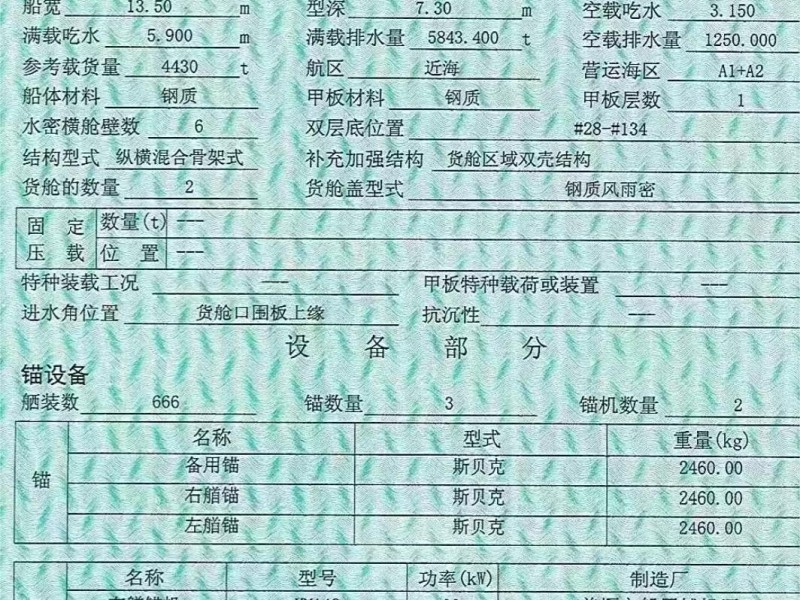 船宽 13.50 m 型深 7.30 m 空载吃水 3.150
满载吃水 5.900 m 满载排水量 5843.400 t 空载排水量 1250.000
参考载货量 4430 t 航区 近海 营运海区 A1+A2
船体材料 钢质 甲板材料 钢质 甲板层数 1
水密横舱壁数 6 双层底位置 #28-#134
结构型式 纵横混合骨架式 补充加强结构 货舱区域双壳结构
货舱的数量 2 货舱盖型式 钢质风雨密
固定压载 数量(t) ---
位置 ---
特种装载工况 --- 甲板特种载荷或装置 ---
进水角位置 货舱口围板上缘 抗沉性 ---
设备部分
锚设备
舾装数 666 锚数量 3 锚机数量 2
锚 名称 型式 重量(kg)
备用锚 斯贝克 2460.00
右艏锚 斯贝克 2460.00
左艏锚 斯贝克 2460.00
名称 型号 功率(kW) 制造厂